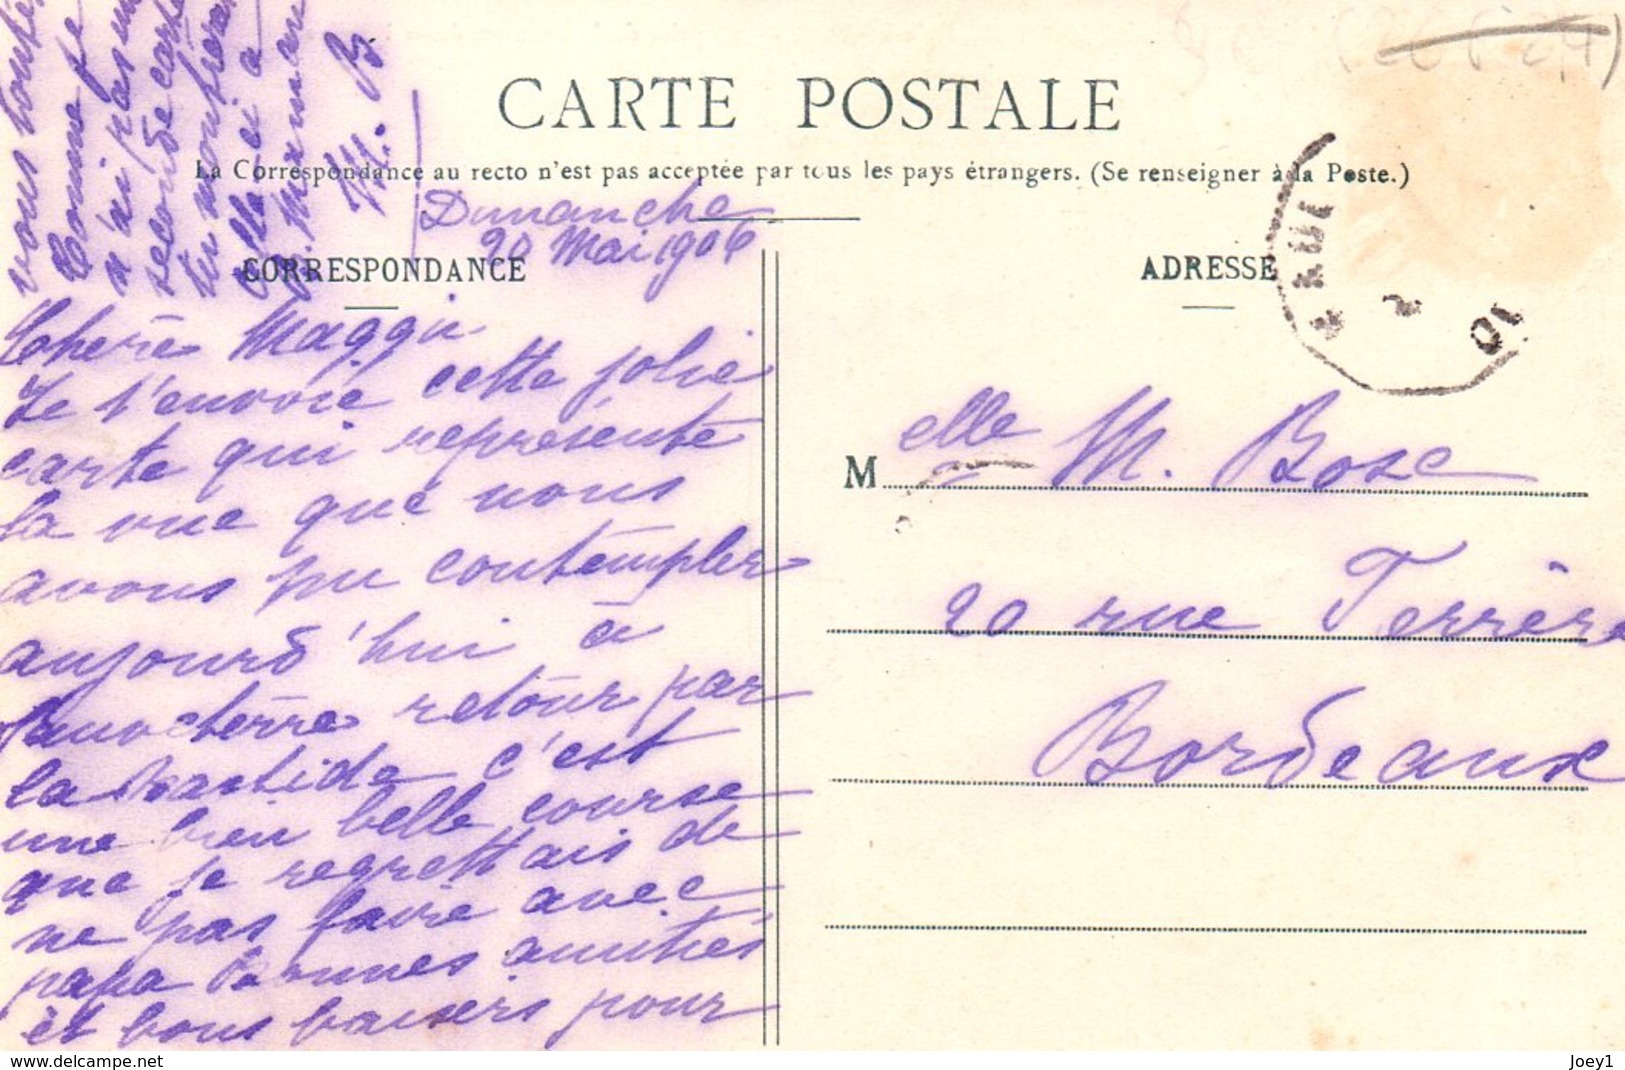 CARTE POSTALE
La Correspondance au recto n'est pas acceptée par tous les pays étrangers. (Se renseigner à la Poste.)
Dimanche
20 Mai 1906
CORRESPONDANCE
Chere Maggie
Je t'envoie cette jolie
carte qui représente
la vue que nous
avons pu contempler
aujourd'hui à
retour par
la bastide c'est
une bien belle course
que je regrettais de
ne pas faire avec
papa Bonnes amitiés
et bons baisers pour
vous toutes
Comme je
n'ai pas
seconde carte
tu montreras
celle ci a
Maman
M. B
ADRESSE
Melle M. Bosc
20 rue Terrère
Bordeaux
delcampe.net
Joey1